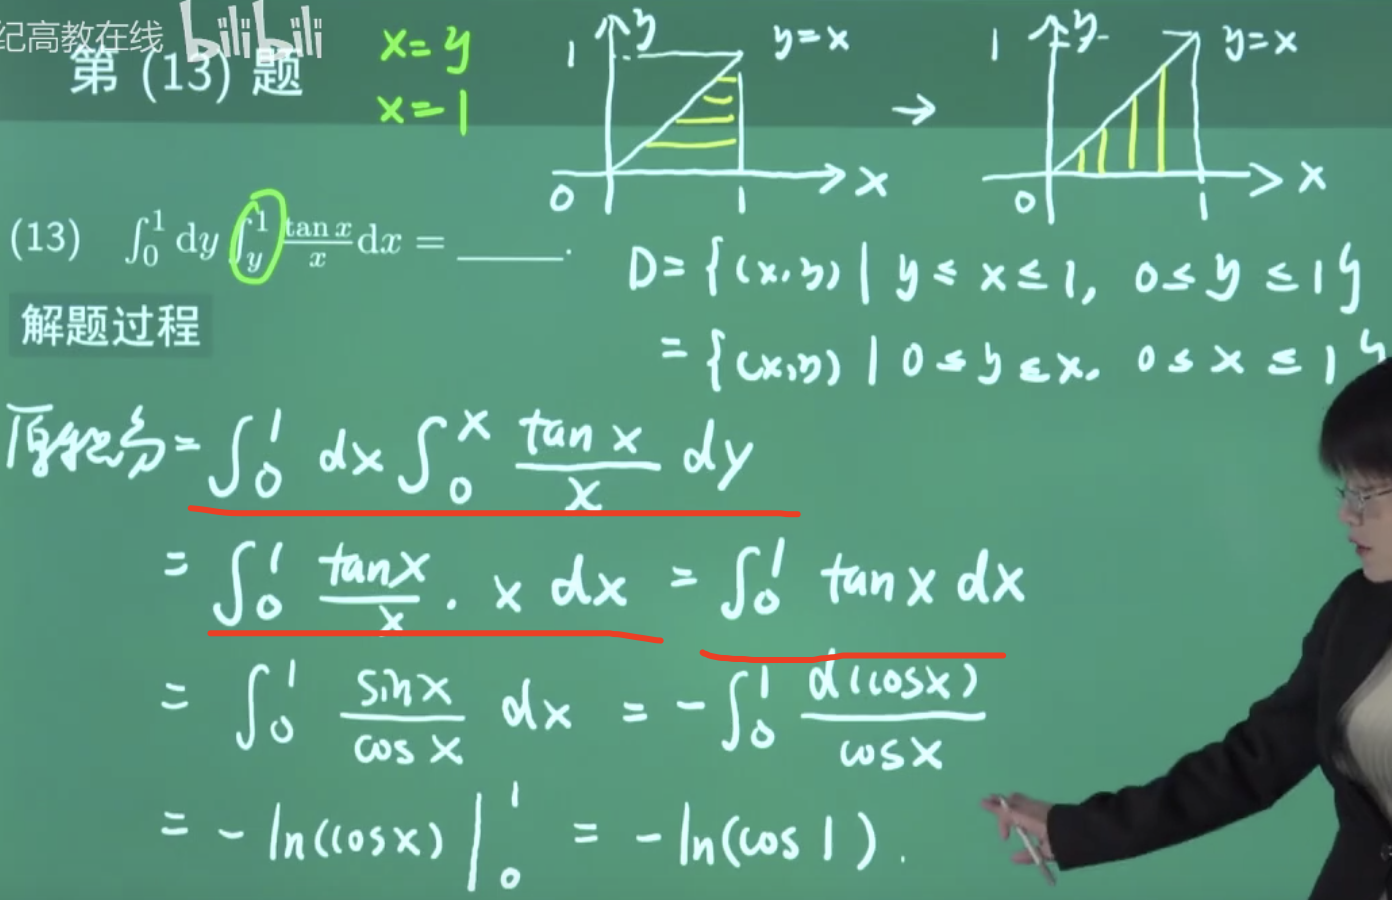 纪高教在线 bilibili
第 (13) 题
x=y
x=1
1 y y=x
0 1 x
→
1 y y=x
0 1 x
(13) ∫₀¹ dy ∫_y^1 \frac{tan x}{x} dx = ______.
D={(x,y) | y≤x≤1, 0≤y≤1}
={(x,y) | 0≤y≤x, 0≤x≤1}
解题过程
原积分=∫₀¹ dx ∫₀ˣ \frac{tan x}{x} dy
=∫₀¹ \frac{tanx}{x} · x dx = ∫₀¹ tan x dx
=∫₀¹ \frac{sin x}{cos x} dx = -∫₀¹ \frac{d(cosx)}{cosx}
=-ln(cosx)|₀¹ = -ln(cos 1).